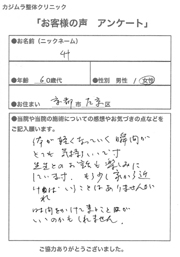 カジムラ整体クリニック
「お客様の声 アンケート」
●お名前(ニックネーム)
●年齢 60歳代 ●性別 男性 女性
●お住まい 京都市左京区
●当院や当院の施術についての感想やお気づきの点などを
ご記入願います。
体が軽くなっていく瞬間が
とても気持いいです
先生とのお話も楽しみに
しています。もう少し家から近
ければいうことはありませんがね
時間をかけて来ることが
いいのかもしれません。
ご協力ありがとうございました。